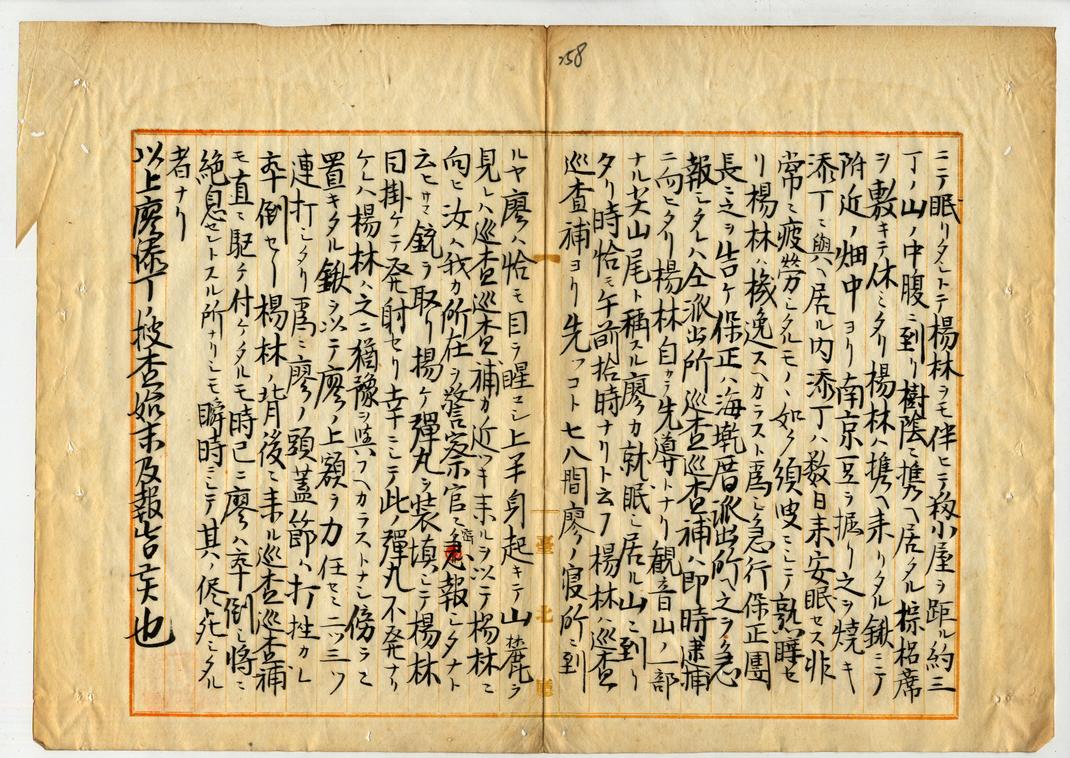 258
ニテ眠リタシトテ楊林ヲモ伴ヒテ仝小屋ヲ距ル約三
丁ノ山ノ中腹ニ到リ樹蔭ニ携ヘ居タル棕梠席
ヲ敷キテ休ミタリ楊林ハ携ヘ来リタル鍬ニテ
附近ノ畑中ヨリ南京豆ヲ掘リ之ヲ焼キ
添丁ニ與ヘ居ル内添丁ハ数日来安眠セス非
常ニ疲労シタルモノヽ如ク須臾ニシテ熟睡セ
リ楊林ハ機逸スヘカラスト為シ急行保正
長ニ之ヲ告ケ保正ハ海墘厝派出所ヘ之ヲ急
報シタレハ仝派出所巡査巡査補ハ即時逮捕
ニ向ヒタリ楊林自カラ先導トナリ観音山ノ一部
ナル尖山尾ト稱スル廖カ就眠シ居ル山ニ到リ
タリ時恰モ午前拾時ナリト云フ楊林ハ巡査
巡査補ヨリ先ツコト七八間廖ノ寝所ニ到
臺北
ルヤ廖ハ恰モ目ヲ醒マシ上半身起キテ山麓ヲ
見レハ巡査巡査補カ近ツキ来ルヲ以テ楊林ニ
向ヒ汝ハ我カ所在ヲ警察官ニ密報シタナト
云ヒサマ銃ヲ取リ揚ケ彈丸ヲ装填シテ楊林
目掛ケテ発射セリ幸ニシテ此ノ彈丸不発ナリ
ケレハ楊林ハ之ニ猶豫ヲ與フヘカラストナシ傍ラニ
置キタル鍬ヲ以テ廖ノ上額ヲ力任セニ二ツ三ツ
連打シタリ為ニ廖ノ頭蓋節ハ打挫カレ
卒倒セリ楊林ノ背後ニ来ル巡査巡査補
モ直ニ駆ケ付ケタルモ時已ニ廖ハ卒倒シ将ニ
絶息セントスル所ナリシモ瞬時ニシテ其ノ侭死シタル
者ナリ
以上廖添丁ノ捜査始末及報告候也